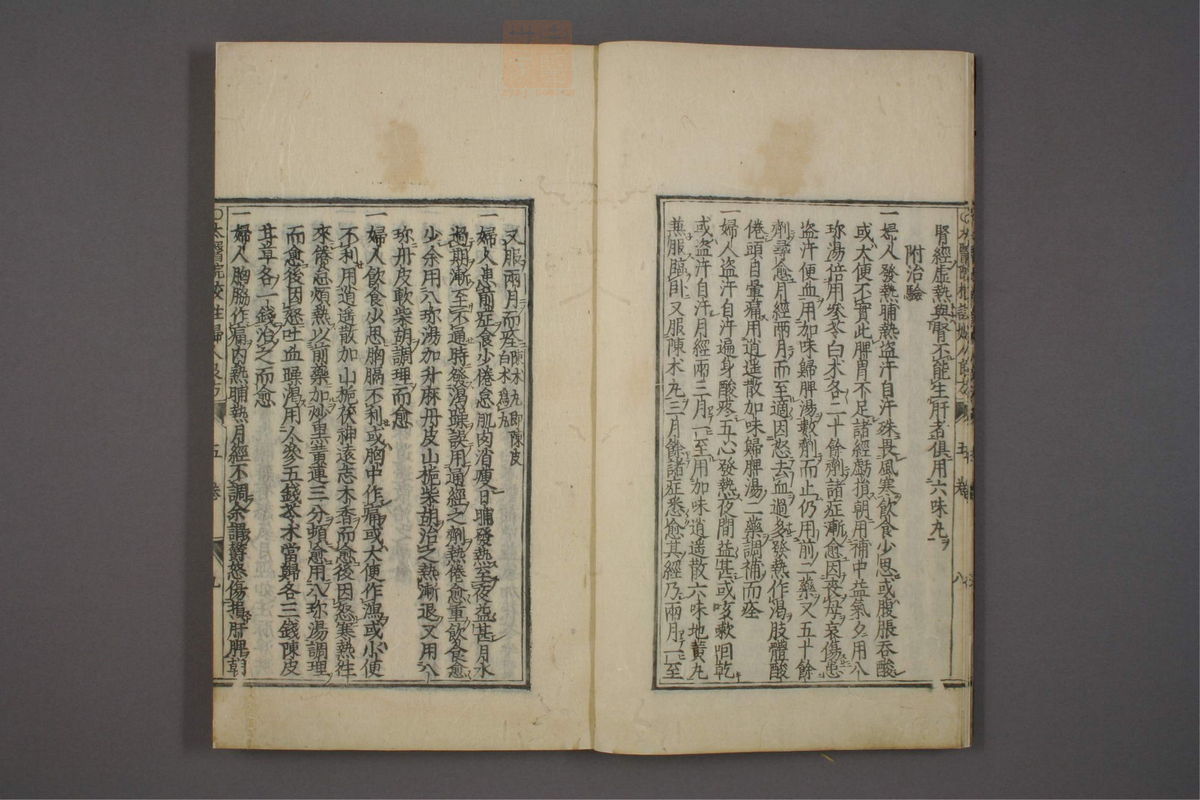 腎經虛熱與腎不能生肝者俱用六味丸
附治驗
一婦人發熱晡熱盜汗自汗殊畏風寒飲食少思或腹脹吞酸
或大便不實此脾胃不足諸經虧損朝用補中益氣夕用八
珎湯倍用參苓白术各二十餘劑諸症漸愈因喪母哀傷患
盜汗便血用加味歸脾湯數劑而止仍用前二藥又五十餘
劑尋愈月經兩月而至適因怒去血過多發熱作渴肢體酸
倦頭目暈痛用逍遥散加味歸脾湯二藥調補而痊
一婦人盜汗自汗遍身酸疼五心發熱夜間益甚或咳嗽咽乾
或盜汗自汗月經兩三月一至用加味逍遥散六味地黄丸
兼服臨卧又服陳术丸三月餘諸症悉愈其經乃兩月一至
又服兩月而痊陳术丸即陳皮白术爲丸
一婦人患前症食少倦怠肌肉消瘦日晡發熱至夜益甚月水
過期漸至不通時發渴躁誤用通經之劑熱倦愈重飲食愈
少余用八珎湯加升麻丹皮山梔柴胡治之熱漸退又用八
珎丹皮軟柴胡調理而愈
一婦人飲食少思胸膈不利或胸中作痛或大便作瀉或小便
不利用逍遥散加山梔茯神遠志木香而愈後因怒寒熱徃
來倦怠煩熱以前藥加炒黒黄連三分頻愈用八珎湯調理
而愈後因怒吐血躁渴用人參五錢苓术當歸各三錢陳皮
甘草各一錢治之而愈
一婦人胸脇作痛内熱晡熱月經不調余謂鬱怒傷損肝脾朝
○太醫院校註婦人良方
五卷
九